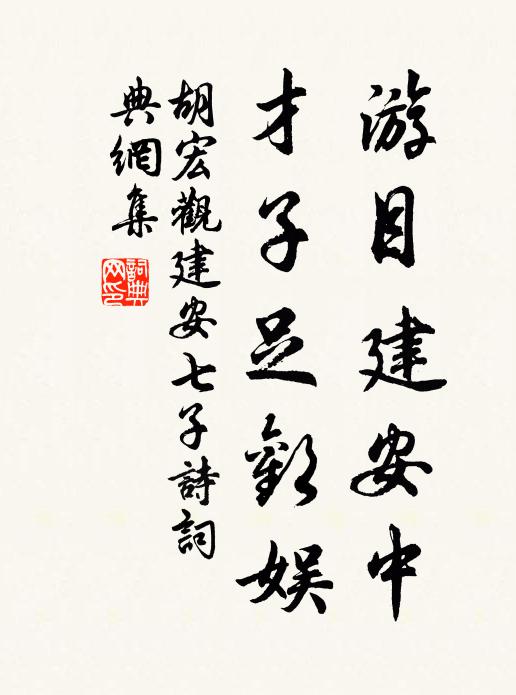 游目建安中
才子足歡娛
胡宏觀建安七子詩詞
典網集
詞典
网印